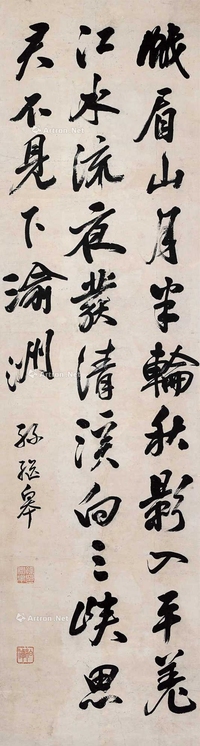 峨眉山月半輪秋影入平羌
江水流夜發清溪向三峽思
君不見下渝洲
孫繼皋